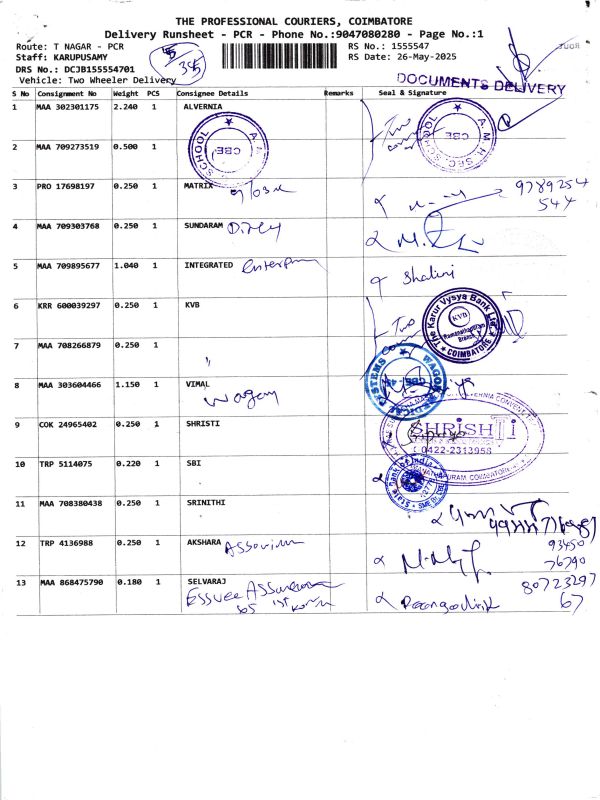 THE PROFESSIONAL COURIERS, COIMBATORE
Delivery Runsheet - PCR - Phone No.:9047080280 - Page No.:1
Route: T NAGAR - PCR
RS No.: 1555547
Staff: KARUPUSAMY
RS Date: 26-May-2025
DRS No.: DCJB155554701
Vehicle: Two Wheeler Delivery
DOCUMENTS DELIVERY
S No Consignment No Weight PCS Consignee Details Remarks Seal & Signature
1 MAA 302301175 2.240 1 ALVERNIA
A.M.H. SEC SCHOOL CBE
2 MAA 709273519 0.500 1
SCHOOL A.M. CBE
3 PRO 17698197 0.250 1 MATRIX
9789254
544
4 MAA 709303768 0.250 1 SUNDARAM
5 MAA 709895677 1.040 1 INTEGRATED Shalini
6 KRR 600039297 0.250 1 KVB Two
The Karur Vysya Bank Ltd.
KVB
Branch
COIMBATORE
7 MAA 708266879 0.250 1 "
8 MAA 303604466 1.150 1 VIMAL
Wagon
SYSTEMS WAGON MEDICAL CBE-45
9 COK 24965402 0.250 1 SHRISTI
SHRISHTI
0422-2313958
RAMANATHAPURAM COIMBATORE
10 TRP 5114075 0.220 1 SBI
11 MAA 708380438 0.250 1 SRINITHI
12 TRP 4136988 0.250 1 AKSHARA
93450
76790
13 MAA 868475790 0.180 1 SELVARAJ
Essvee Assurance
80723297
67